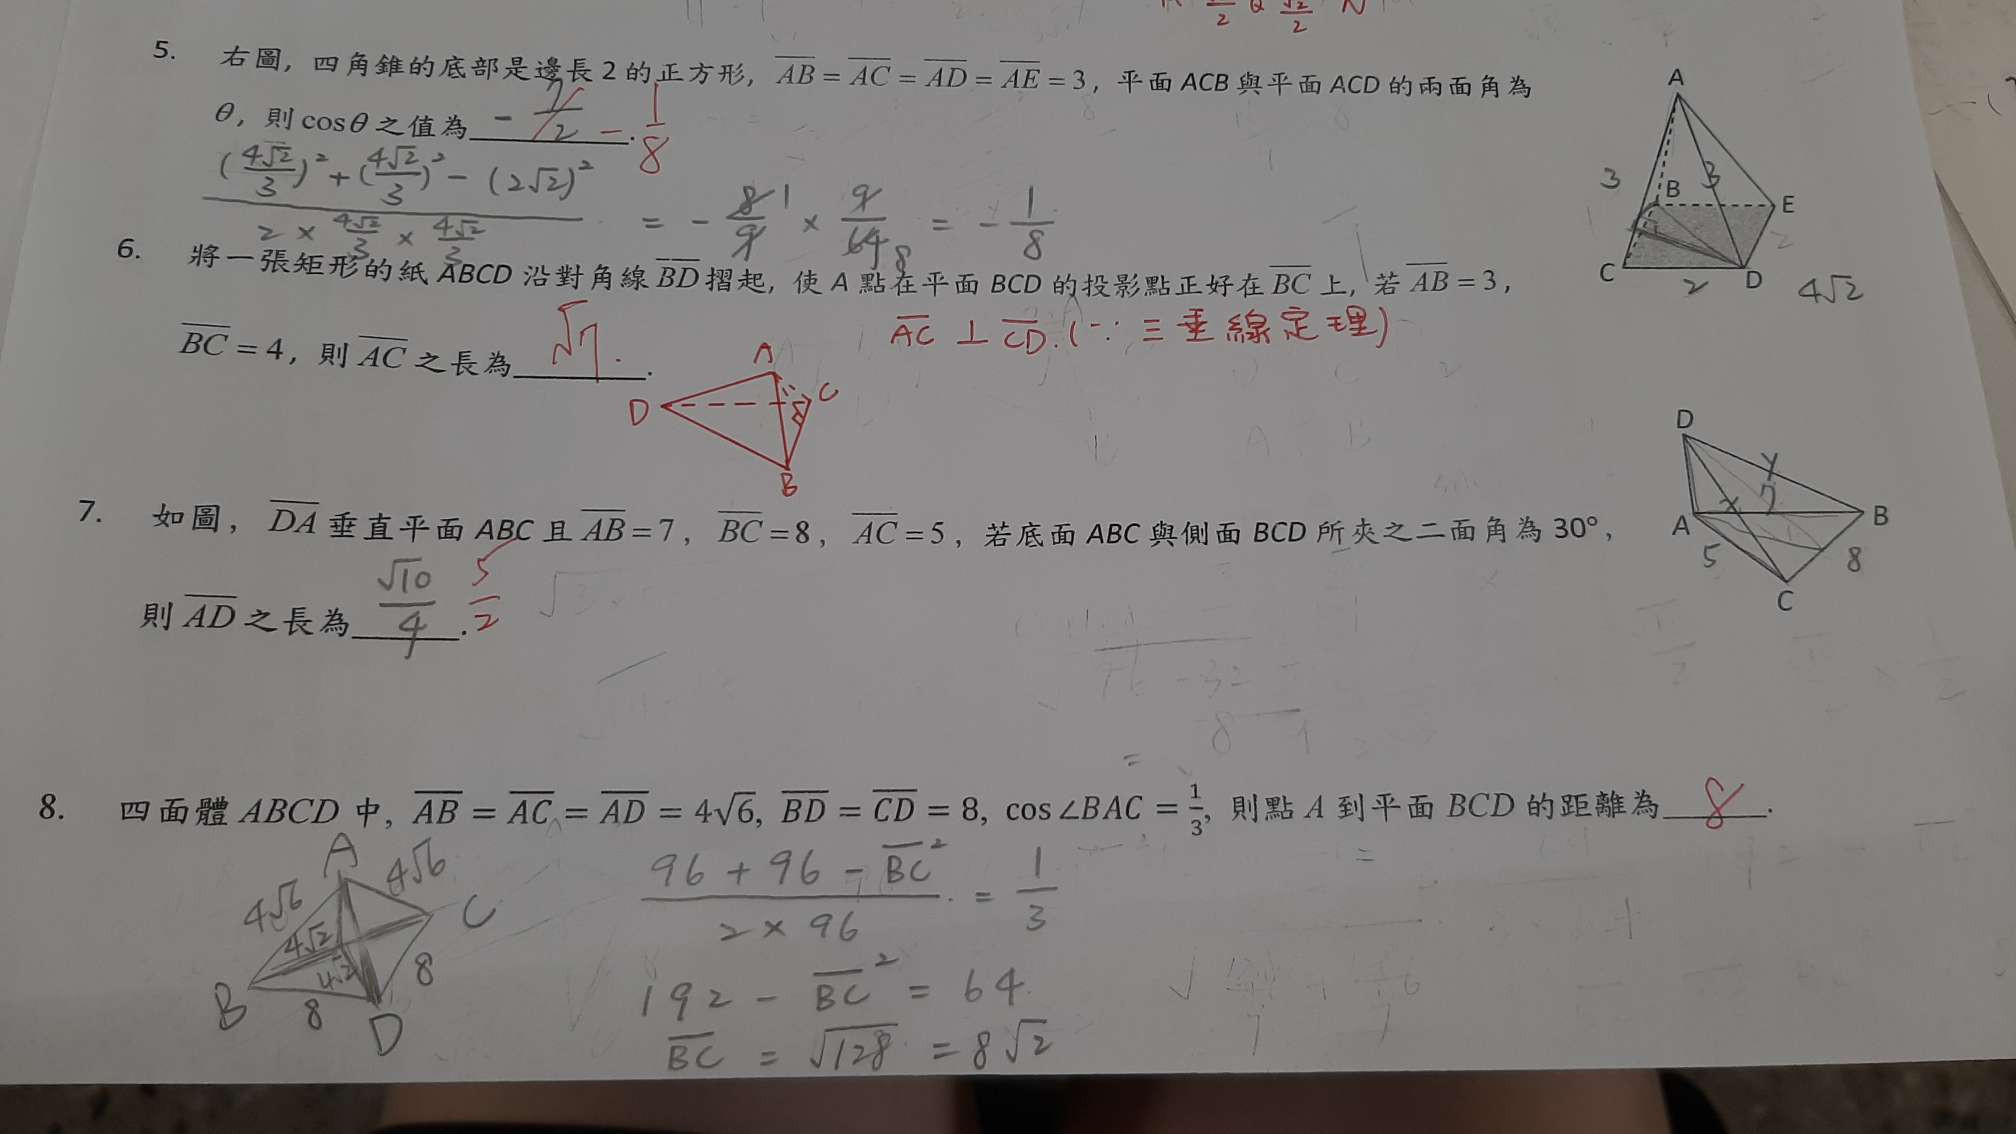 5. 右圖, 四角錐的底部是邊長 2 的正方形, AB = AC = AD = AE = 3, 平面 ACB 與平面 ACD 的兩面角為
θ, 則 cosθ 之值為 - 7/2 - 1/8 .
((4√2/3)² + (4√2/3)² - (2√2)²) / (2 × 4√2/3 × 4√2/3) = - 8/9 × 9/64 = - 1/8
A
3
3
B
E
2
C
2
D
4√2
6. 將一張矩形的紙 ABCD 沿對角線 BD 摺起, 使 A 點在平面 BCD 的投影點正好在 BC 上, 若 AB = 3,
BC = 4, 則 AC 之長為 √7 .
AC ⊥ CD. (∵ 三垂線定理)
A
D
C
B
7. 如圖, DA 垂直平面 ABC 且 AB = 7, BC = 8, AC = 5, 若底面 ABC 與側面 BCD 所夾之二面角為 30°,
則 AD 之長為 √10/4 . 5/2
D
y
x
7
A
B
5
8
C
8. 四面體 ABCD 中, AB = AC = AD = 4√6, BD = CD = 8, cos∠BAC = 1/3, 則點 A 到平面 BCD 的距離為 8 .
A
4√6
4√6
C
4√2
4√2
B
8
8
D
(96 + 96 - BC²) / (2 × 96) = 1/3
192 - BC² = 64
BC = √128 = 8√2